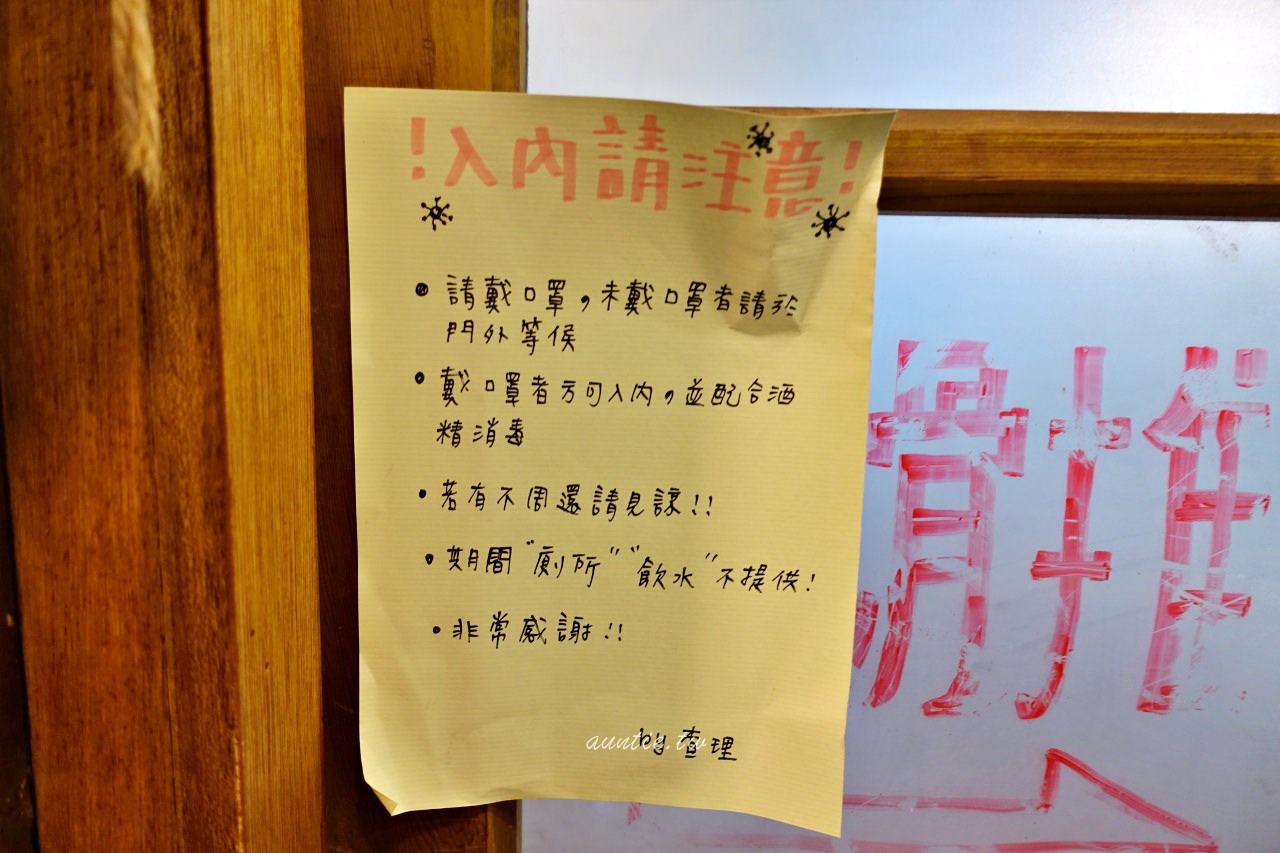 ！入內請注意！
• 請戴口罩，未戴口罩者請於
門外等候
• 戴口罩者方可入內，並配合酒
精消毒
• 若有不周還請見諒！！
• 期間“廁所”“飲水”不提供！
• 非常感謝！！
by 查理
auntie.tw
推